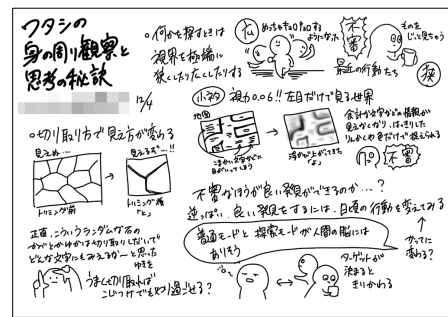 ワタシの
身の周り観察と
思考の秘訣
12/4
○何かを探すときは
視界を極端に
狭くしたり広くしたりする
広
めっちゃキョロキョロする
ようになった
不審
最近の行動たち
ものを
じっと見ちゃう
狭
小ネタ 視力0.06!!左目だけで見る世界
地図
こまかい文字などに
目がいってしまう
浮かび上がってきた
余計な文字などの情報が
見えなくなり、はっきりした
りんかくや色だけで捉えられる
不審
○切り取り方で見え方が変わる
見えぬ…
トリミング前
見えるぞ…!!
トリミング後
「と」
正直、こういうランダムな石の
かべとかゆかは切り取りしだいで
どんな文字にもみえるな〜と思った
ゆきを
うまく切り取れば
こじつけでもやり過ごせる?
不審なほうが良い発見ができるのか…?
逆っぽい。良い発見をするには、日頃の行動を変えてみる
かってに
変わる?
普通モードと探索モードが人間の脳には
ありそう
ターゲットが
決まると
きりかわる